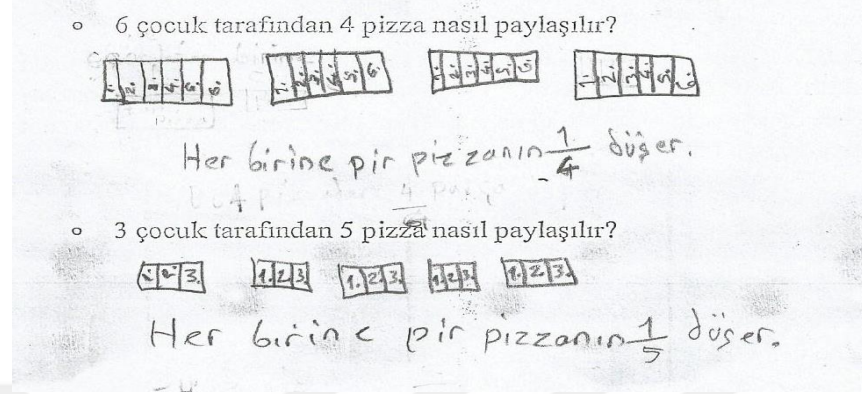 6 çocuk tarafından 4 pizza nasıl paylaşılır?
1. 2. 3. 4. 5. 6. 1. 2. 3. 4. 5. 6. 1. 2. 3. 4. 5. 6. 1. 2. 3. 4. 5. 6.
Her birine pir pizzanın 1/4 düşer.
3 çocuk tarafından 5 pizza nasıl paylaşılır?
1. 2. 3. 1. 2. 3. 1. 2. 3. 1. 2. 3. 1. 2. 3.
Her birine pir pizzanın 1/5 düşer.